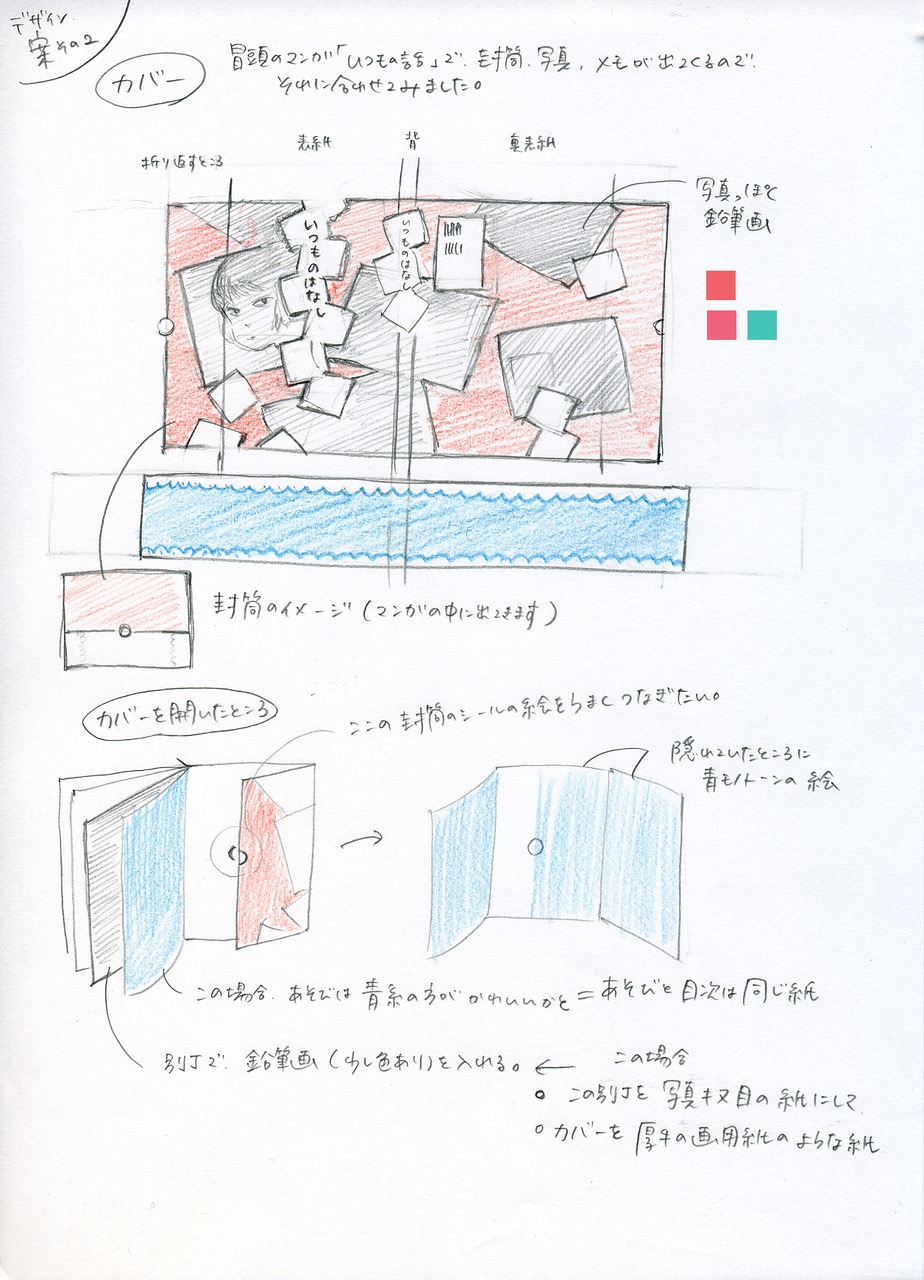 デザイン
案その2
カバー
冒頭のマンガ「いつもの話」で、封筒、写真、メモが出てくるので、
それに合わせてみました。
折り返すところ
表紙
背
裏表紙
写真っぽく
鉛筆画
いつものはなし
いつものはなし
封筒のイメージ(マンガの中に出てきます)
カバーを開いたところ
ここの封筒のシールの絵をうまくつなぎたい。
隠れていたところに
青モノトーンの絵
この場合、あそびは青系の方がかわいいかと=あそびと目次は同じ紙
別丁で、鉛筆画(少し色あり)を入れる。←
この場合
○ この別丁を写真キヌ目の紙にして
○ カバーを厚手の画用紙のような紙